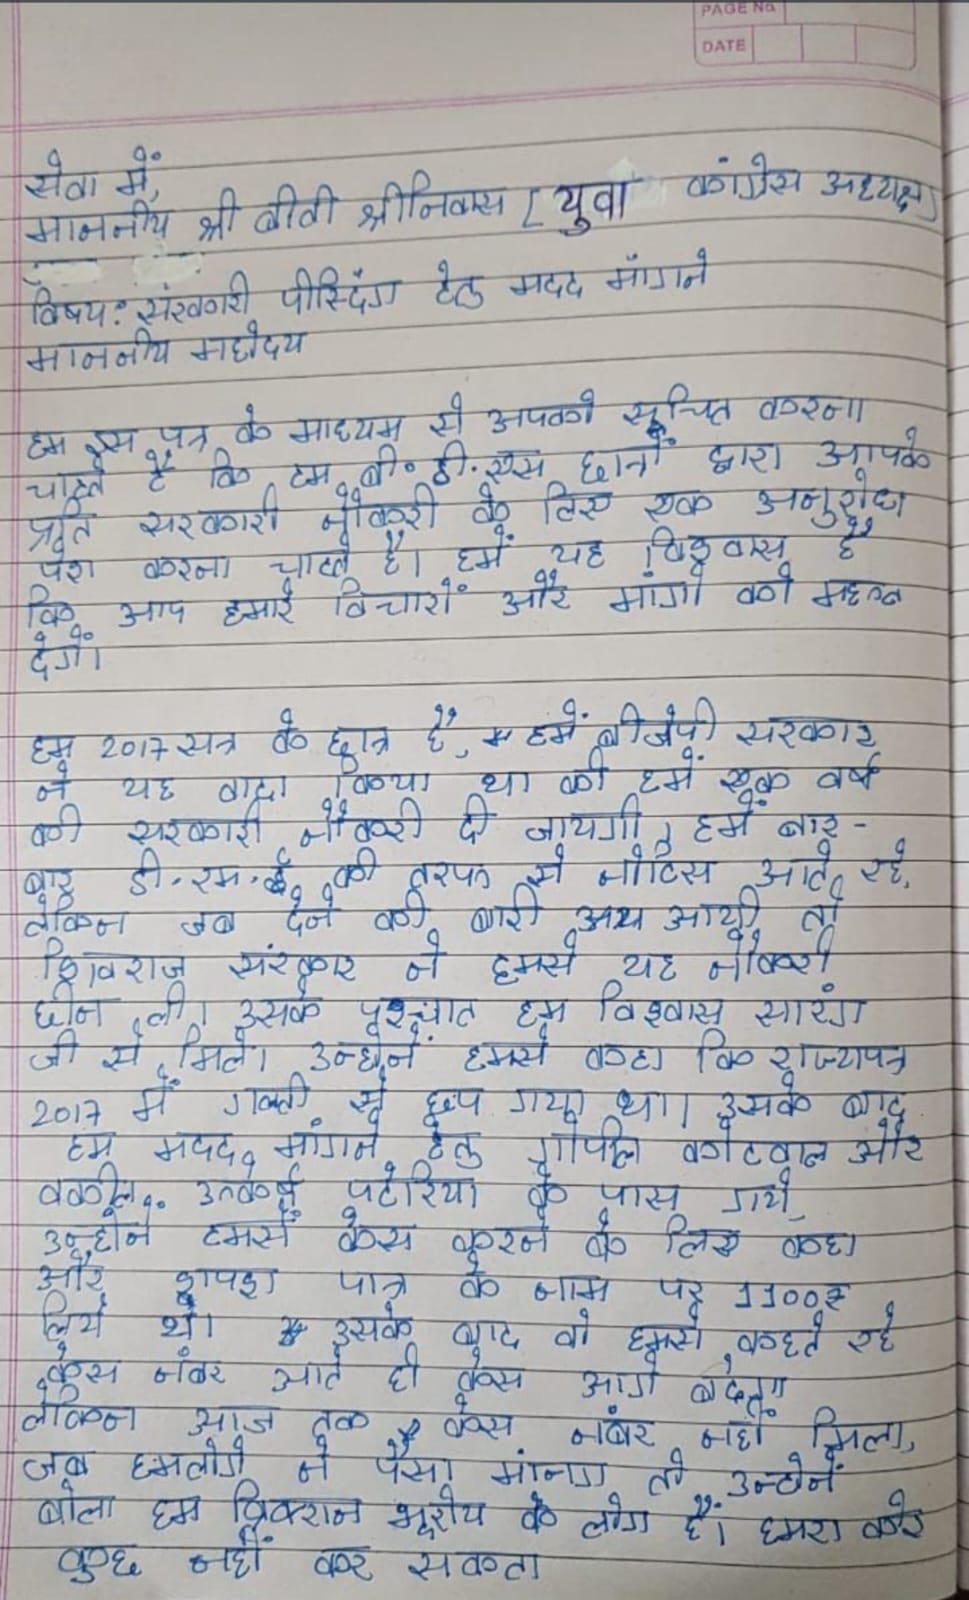 PAGE No.
DATE
सेवा में,
माननीय श्री बीवी श्रीनिवास [युवा कांग्रेस अध्यक्ष]
विषय: सरकारी पोस्टिंग हेतु मदद मांगने
माननीय महोदय
हम इस पत्र के माध्यम से आपको सूचित करना
चाहते है कि हम बी.डी.एस छात्रों द्वारा आपके
प्रति सरकारी नौकरी के लिए एक अनुरोध
पेश करना चाहते है। हमें यह विश्वास है
कि आप हमारे विचारों और मांगो को महत्व
देगें।
हम 2017 सत्र के छात्र है, हमें बीजेपी सरकार
ने यह वादा किया था की हमें एक वर्ष
की सरकारी नौकरी दी जायगी, हमें बार-
बार डी.एम.ई की तरफ से नोटिस आते रहे,
लेकिन जब देने की बारी आयी तो
शिवराज सरकार ने हमसे यह नौकरी
छीन ली। उसके पश्चात हम विश्वास सारंग
जी से मिले। उन्होनें हमसे कहा कि राज्यपत्र
2017 में गलती से छप गया था। उसके बाद
हम मदद मांगने हेतु गोपील कोटवाल और
वकील उत्कर्ष पटेरिया के पास गये,
उन्होंने हमसे केस करने के लिए कहा
और शपथ पात्र के नाम पर 1100₹
लिये थे। उसके बाद वो हमसे कहते रहे
केस नंबर आते ही केस आगे बढेगा
लेकिन आज तक केस नंबर नहीं मिला,
जब हमलोगो ने पैसा मांगा तो उन्होनें
बोला हम विक्रान भूरीय के लोग हैं। हमरा कोई
कुछ नहीं कर सकता